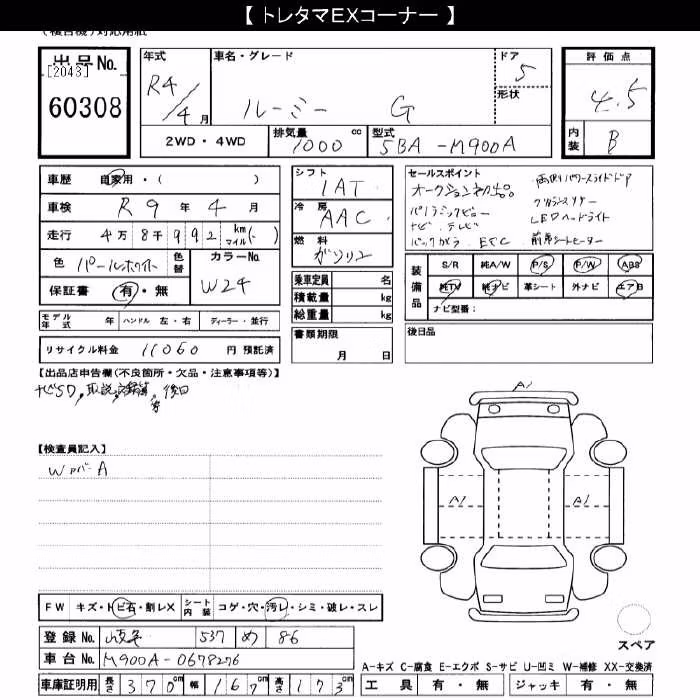 【 トレタマEXコーナー 】
出品No.
[2043]
60308
年式
R4/4月
車名・グレード
ルーミー G
ドア
5
形状
評価点
4.5
内装
B
2WD・4WD
排気量
1000 cc
型式
5BA-M900A
車歴 自家用・( )
車検 R9年4月
走行 4万8千992 km マイル(・)
色 パールホワイト
色替
カラーNo.
W24
保証書 有・無
シフト
IAT
冷房
AAC
燃料
ガソリン
乗車定員 名
積載量 kg
総重量 kg
セールスポイント
オークション初出品。 両側パワースライドドア
パノラミックビュー
ナビ、テレビ LEDヘッドライト
バックカメラ、ETC 前席シートヒーター
装備品
S/R 純A/W P/S P/W ABS
純TV 純ナビ 革シート 外ナビ エアB
ナビ型番:
モデル年式 年 ハンドル 左・右 ディーラー・並行
リサイクル料金 11060 円 預託済
書類期限
月 日
後日品
【出品店申告欄(不良箇所・欠品・注意事項等)】
ナビSD、取説、記録簿等 後日
【検査員記入】
WカバーA
A1
A1
A1
スペア
FW キズ・トビ石・割レX シート内装 コゲ・穴・汚レ・シミ・破レ・スレ
登録No. 岐阜 537 め 86
車台No. M900A-0678276
車庫証明用 長さ 370cm 幅 167cm 高さ 173cm
A-キズ C-腐食 E-エクボ S-サビ U-凹ミ W-補修 XX-交換済
工具 有・無 ジャッキ 有・無